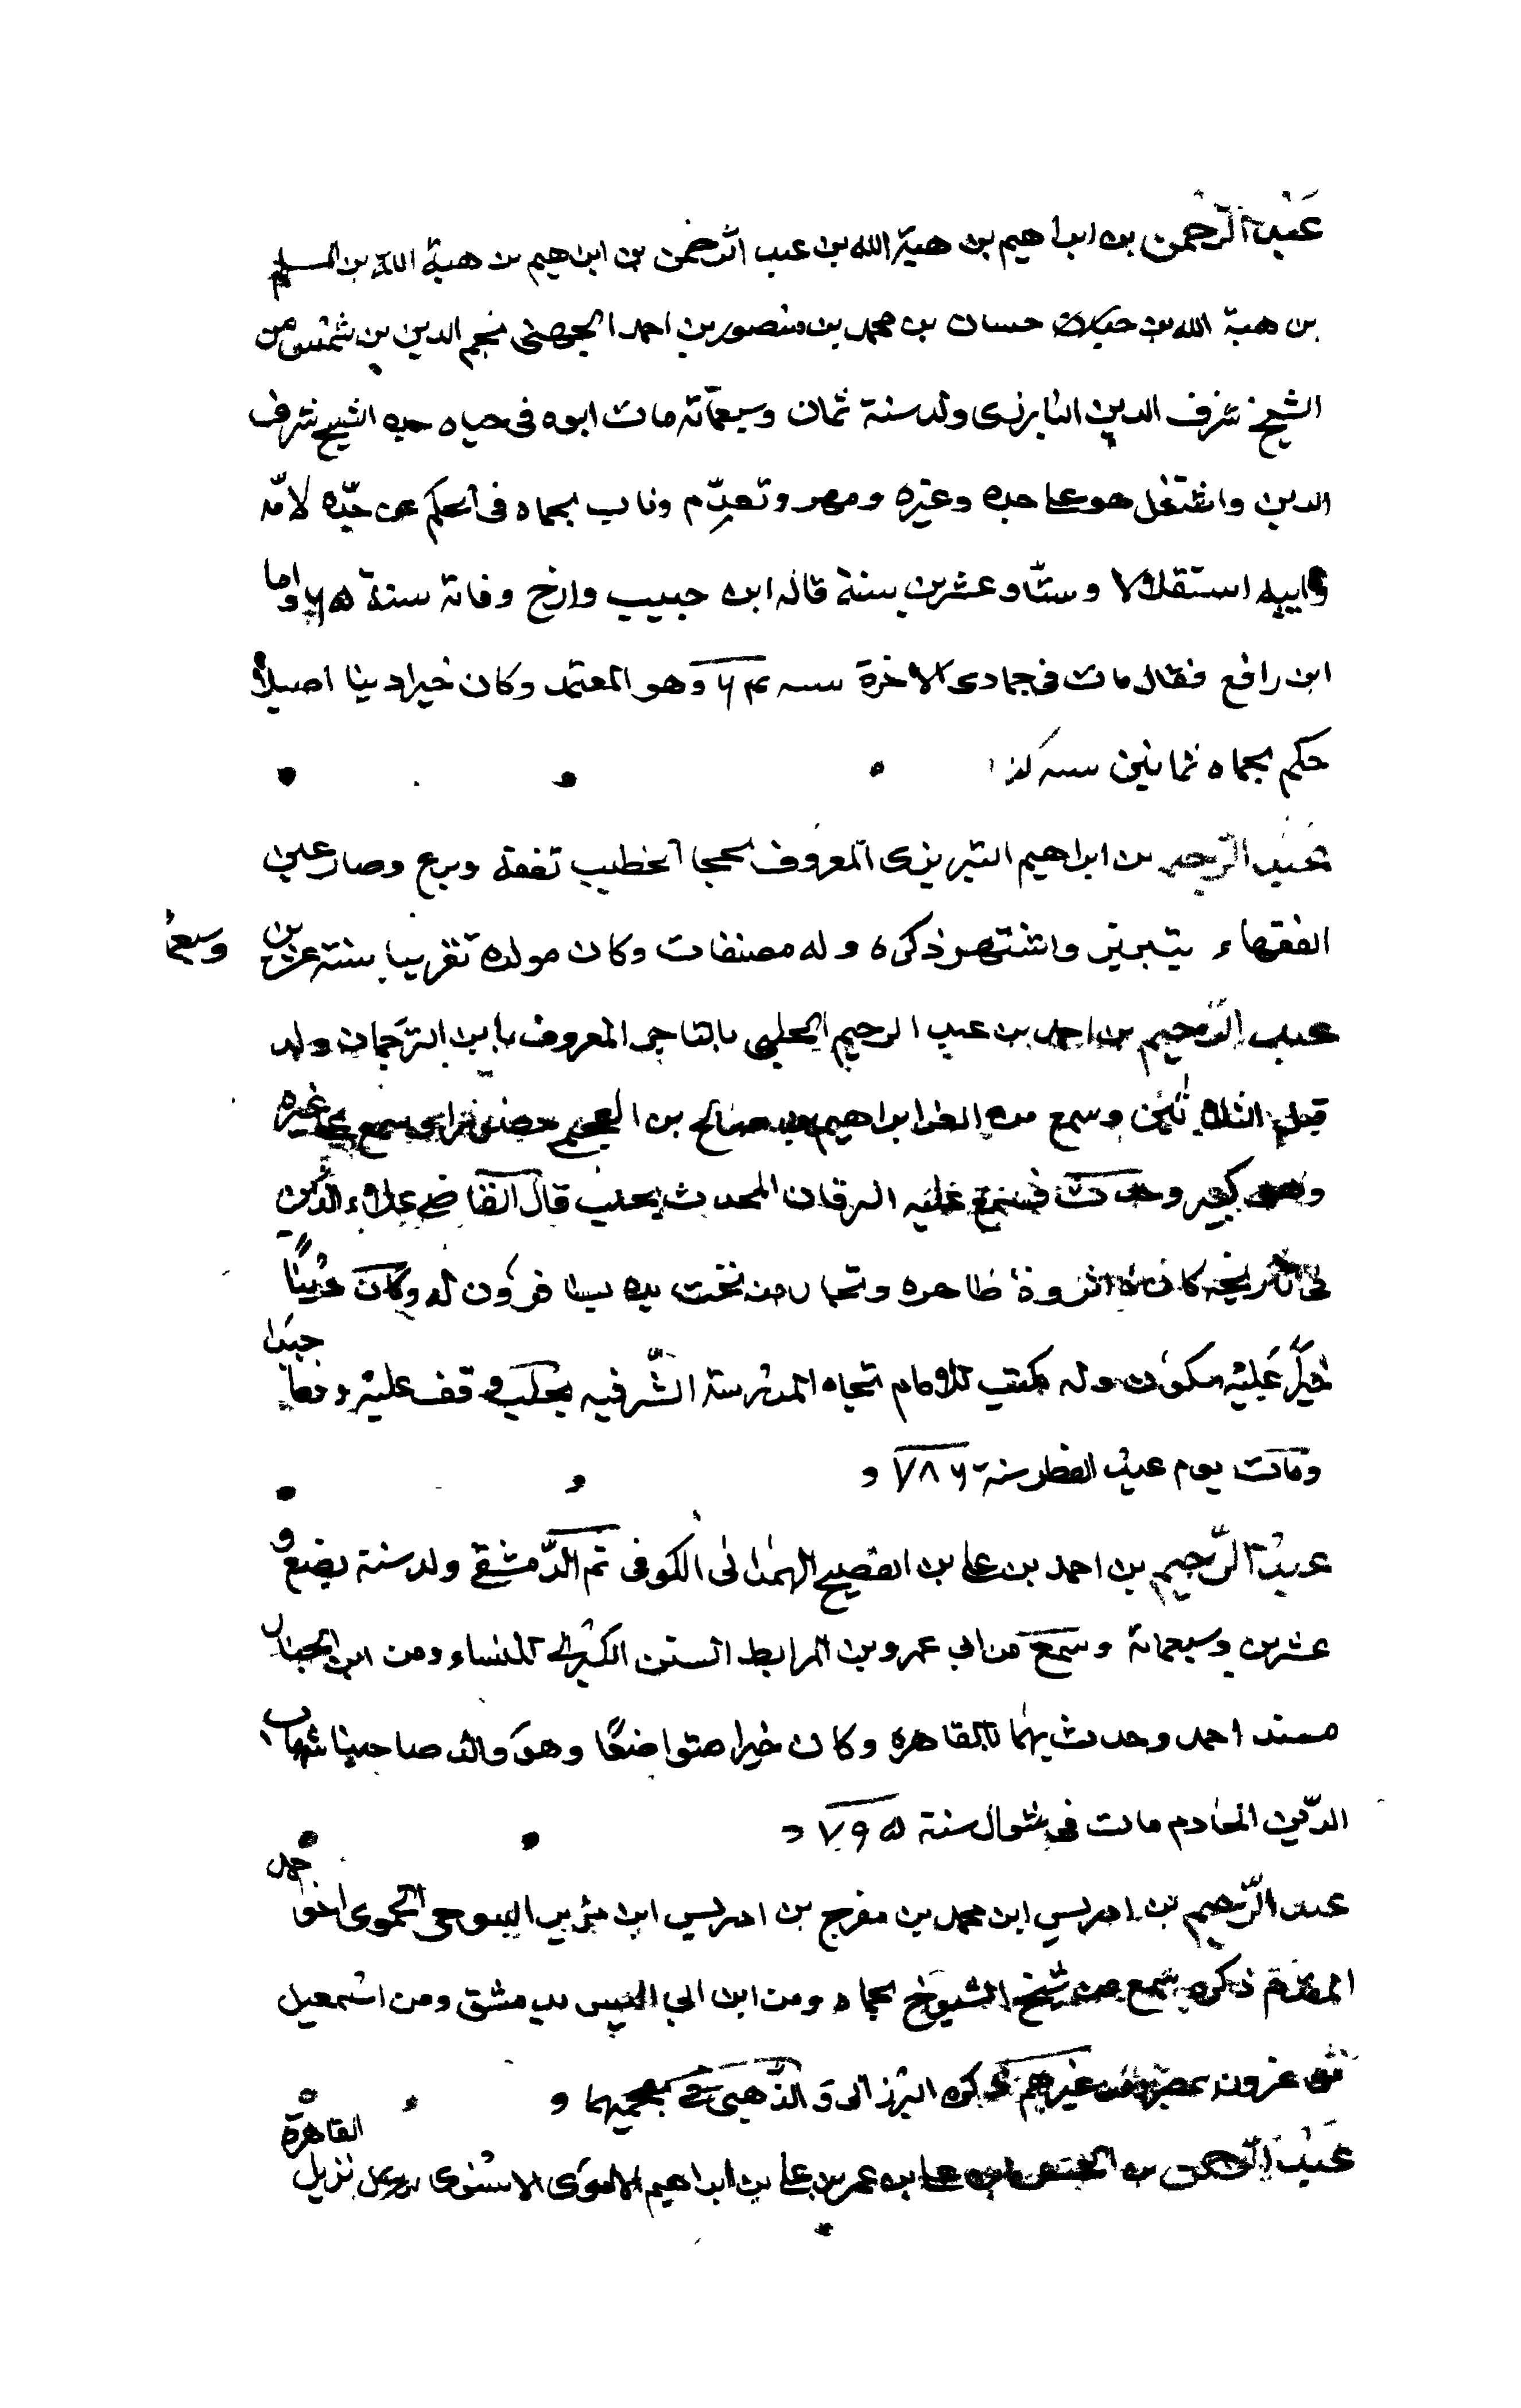 عبد الرحمن بن ابراهيم بن هبة الله بن عبد الرحمن بن ابراهيم بن هبة الله بن المسلم
بن هبة الله بن حسان بن محمد بن منصور بن احمد الجهنى نجم الدين بن شمس بن
الشيخ شرف الدين البارزى ولد سنة ثمان وسبعمائة مات ابوه فى حياه جده الشيخ شرف
الدين واشتغل هو على جده وغيره ومهر وتقدّم وناب بحماه فى الحكم عن جدّه لامّه
وابيه استقلالا وستّا وعشرين سنة قاله ابن حبيب وارخ وفاته سنة ٦٥ واما
ابن رافع فقال مات فى جمادى الاخرة سنه ٦٤ وهو المعتمد وكان خيرا دينا اصيلا
حكم بحماه ثمانين سنه كذا
عبد الرحيم بن ابراهيم التبريزى المعروف الخطيب تفقه وبرع وصار عين
الفقهاء بتبريز واشتهر ذكره وله مصنفات وكان مولده تقريبا سنة عشرين وسبعما
عبد الرحيم بن احمد بن عبد الرحيم الحلبى التاجر المعروف بابن الترجمان ولد
قبل الثلاثين وسمع من ابراهيم بن صالح بن العجمى سمع على غيره
وهو كبير وحدث فسمع عليه البرهان المحدث بحلب قال القاضى علاء الدين
فى تاريخه كان له ثروة ظاهره وتحار من تحت يده يسافرون له وكان دينا
خيرا عليه سكون وله مكتب للايتام تجاه المدرسة الشرفيه بحلب وقف عليه وقفا جيدا
ومات يوم عيد الفطر سنة ٧٨٦
عبد الرّحيم بن احمد بن على بن الفصيح الهمدانى الكوفى ثم الدّمشقى ولد سنة بضع و
عشرين وسبعمائة وسمع من ابى عمرو بن المرابط السنن الكبرى للنساء ومن ابن الخباز
مسند احمد وحدث بهما بالقاهره وكان خيرا متواضعا وهو والد صاحبنا شهاب
الدّين الخادم مات فى شوال سنة ٧٩٥
عبد الرّحيم بن ادريس ابن محمد بن مفرج بن ادريس ابن مزيز الحموى اخو احمد
المقدّم ذكره سمع من شيخ الشيوخ بحماه ومن ابن ابى اليسر بدمشق ومن اسمعيل
بن عزون بمصر ومن غيرهم ذكره البرزالى والذّهبى فى معجميهما
عبد الرّحيم بن الحسن بن على بن عمر بن على بن ابراهيم الاموى الاسنوى نزيل القاهرة